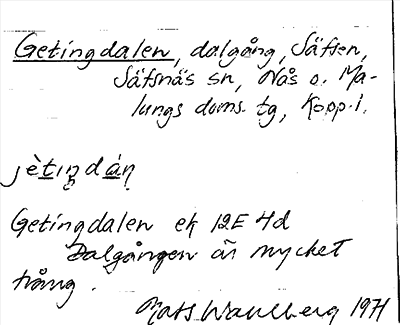 Getingdalen, dalgång, Säfsen,
Säfsnäs sn, Nås o. Ma-
lungs doms. tg, Kopp. l.
jètiŋdàṇ
Getingdalen ek 12E 4d
Dalgången är mycket
trång.
Mats Wahlberg 1971